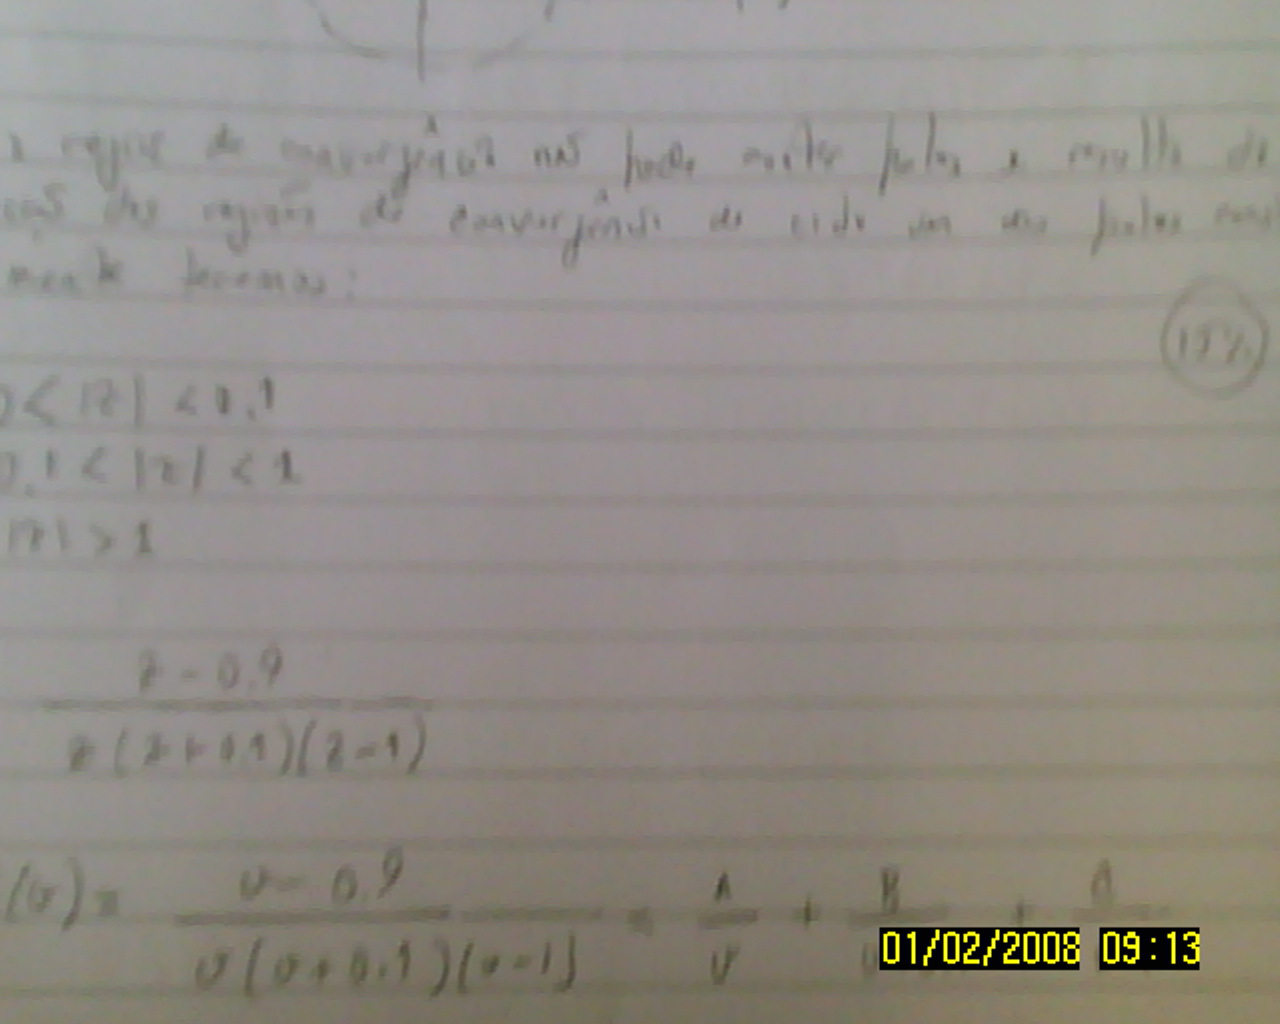 região de convergência não pode conter polos e
das regiões de convergência de cada um dos polos
mente teremos:
15%
0 < |z| < 0.1
0.1 < |z| < 1
|z| > 1
z - 0.9
z (z + 0.1)(z - 1)
(v) = v - 0.9 = A + B +
v (v + 0.1)(v - 1) v
01/02/2008 09:13